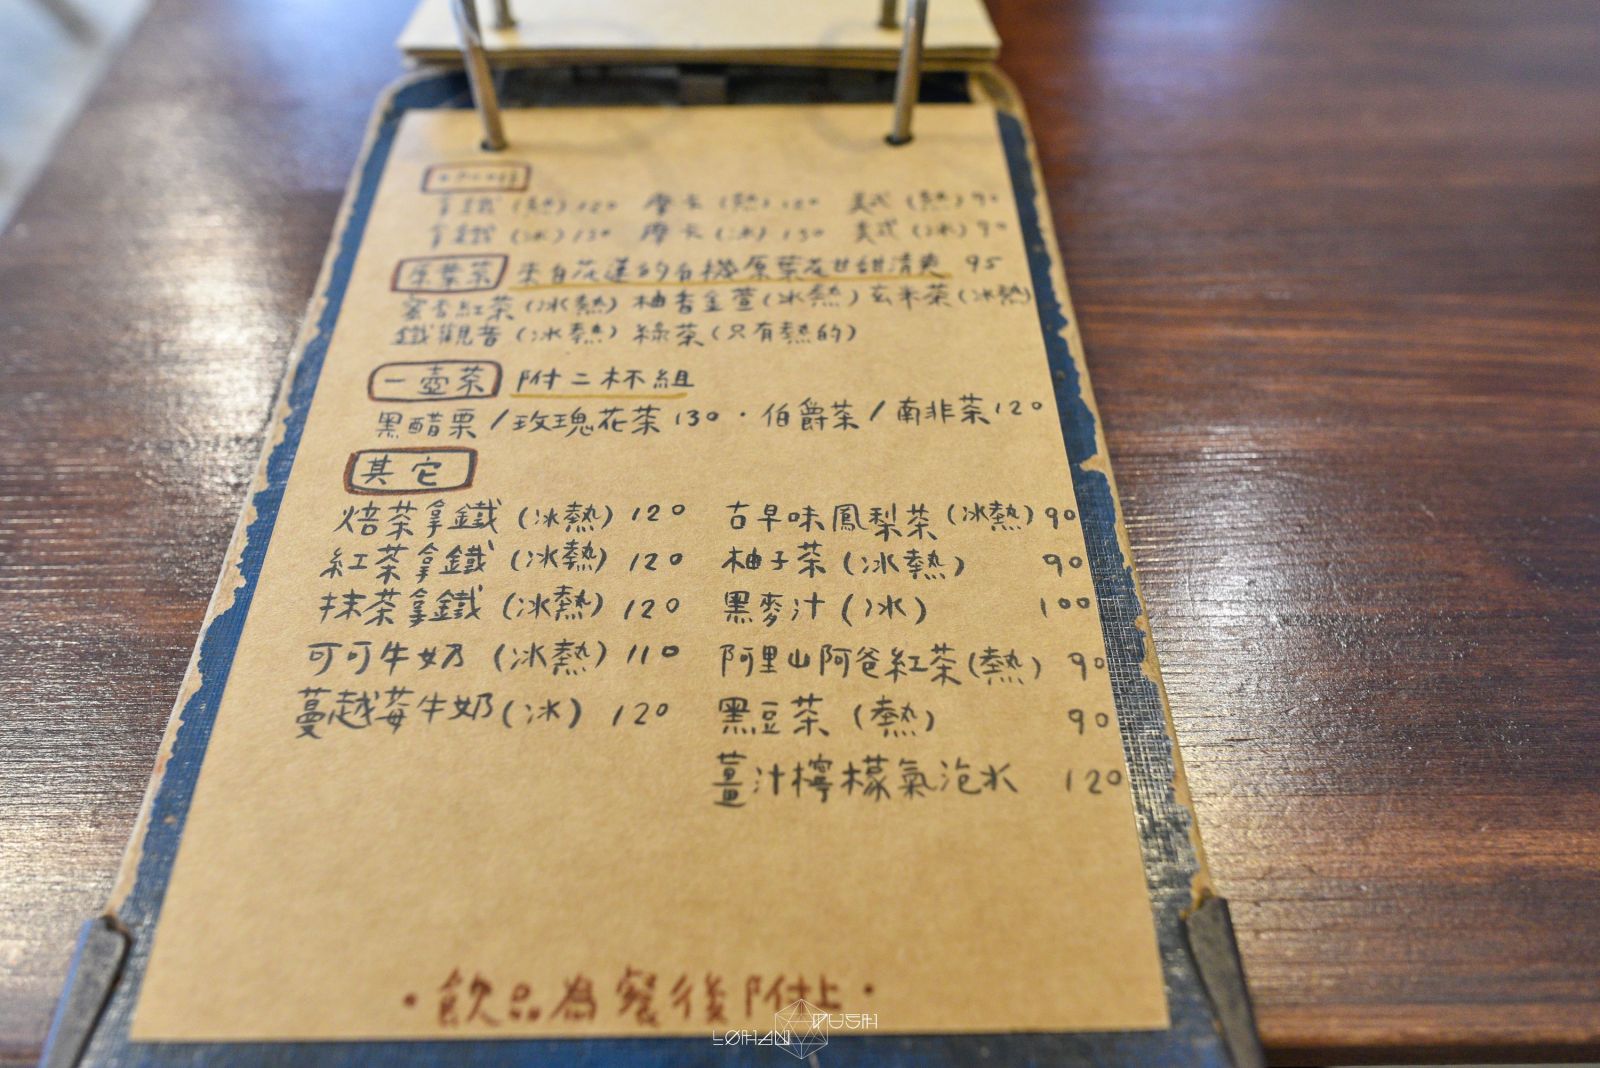 拿鐵(熱)120 摩卡(熱)120 美式(熱)90
拿鐵(冰)130 摩卡(冰)130 美式(冰)90
原葉茶 來自花蓮的有機原葉茶甘甜清爽 95
蜜香紅茶(冰熱) 柚香金萱(冰熱) 玄米茶(冰熱)
鐵觀音(冰熱) 綠茶(只有熱的)
一壺茶 附二杯組
黑醋栗/玫瑰花茶130·伯爵茶/南非茶120
其它
焙茶拿鐵(冰熱) 120 古早味鳳梨茶(冰熱) 90
紅茶拿鐵(冰熱) 120 柚子茶(冰熱) 90
抹茶拿鐵(冰熱) 120 黑麥汁(冰) 100
可可牛奶(冰熱) 110 阿里山阿爸紅茶(熱) 90
蔓越莓牛奶(冰) 120 黑豆茶(熱) 90
薑汁檸檬氣泡水 120
·飲品為餐後附上·
LOHAN PUSH